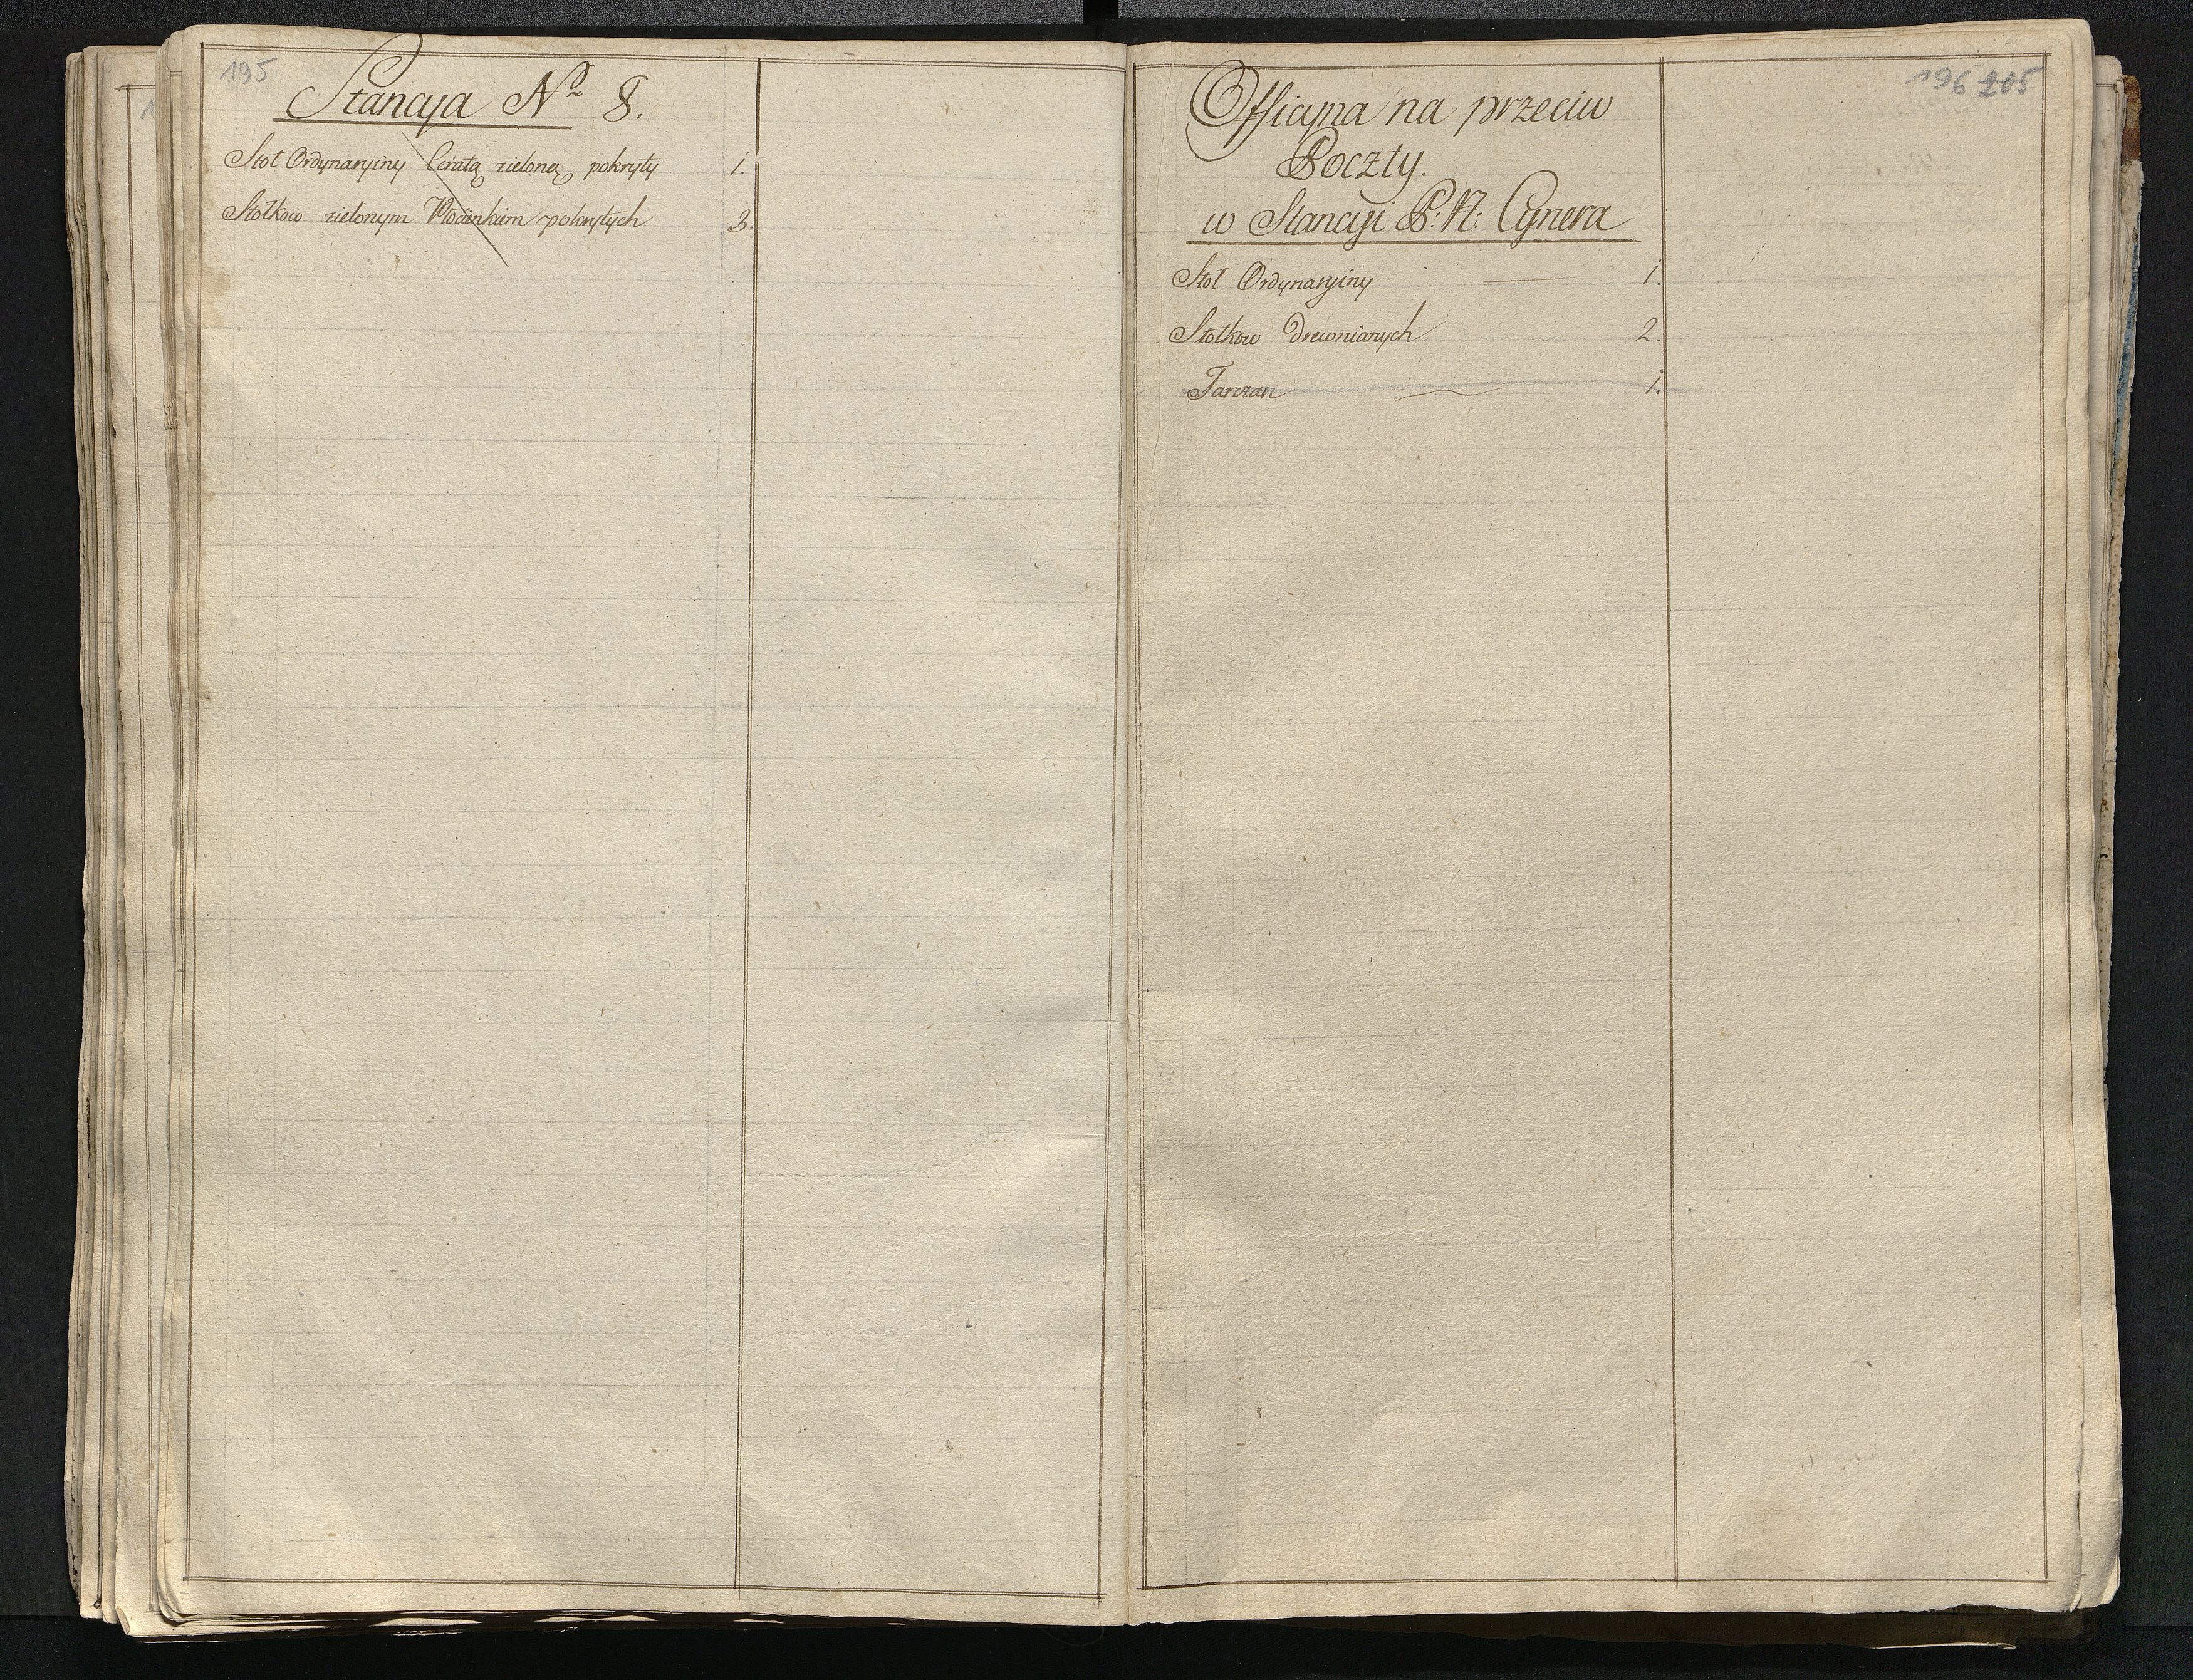 195
Stancya No 8.
Stoł Ordynaryiny Ceratą zieloną pokryty 1.
Stołkow zielonym Płocienkiem pokrytych 3.
196 205
Officyna na przeciw
Poczty.
w Stancyi P: N: Cynera
Stoł Ordynaryiny 1.
Stołkow Drewnianych 2.
Tarczan 1.